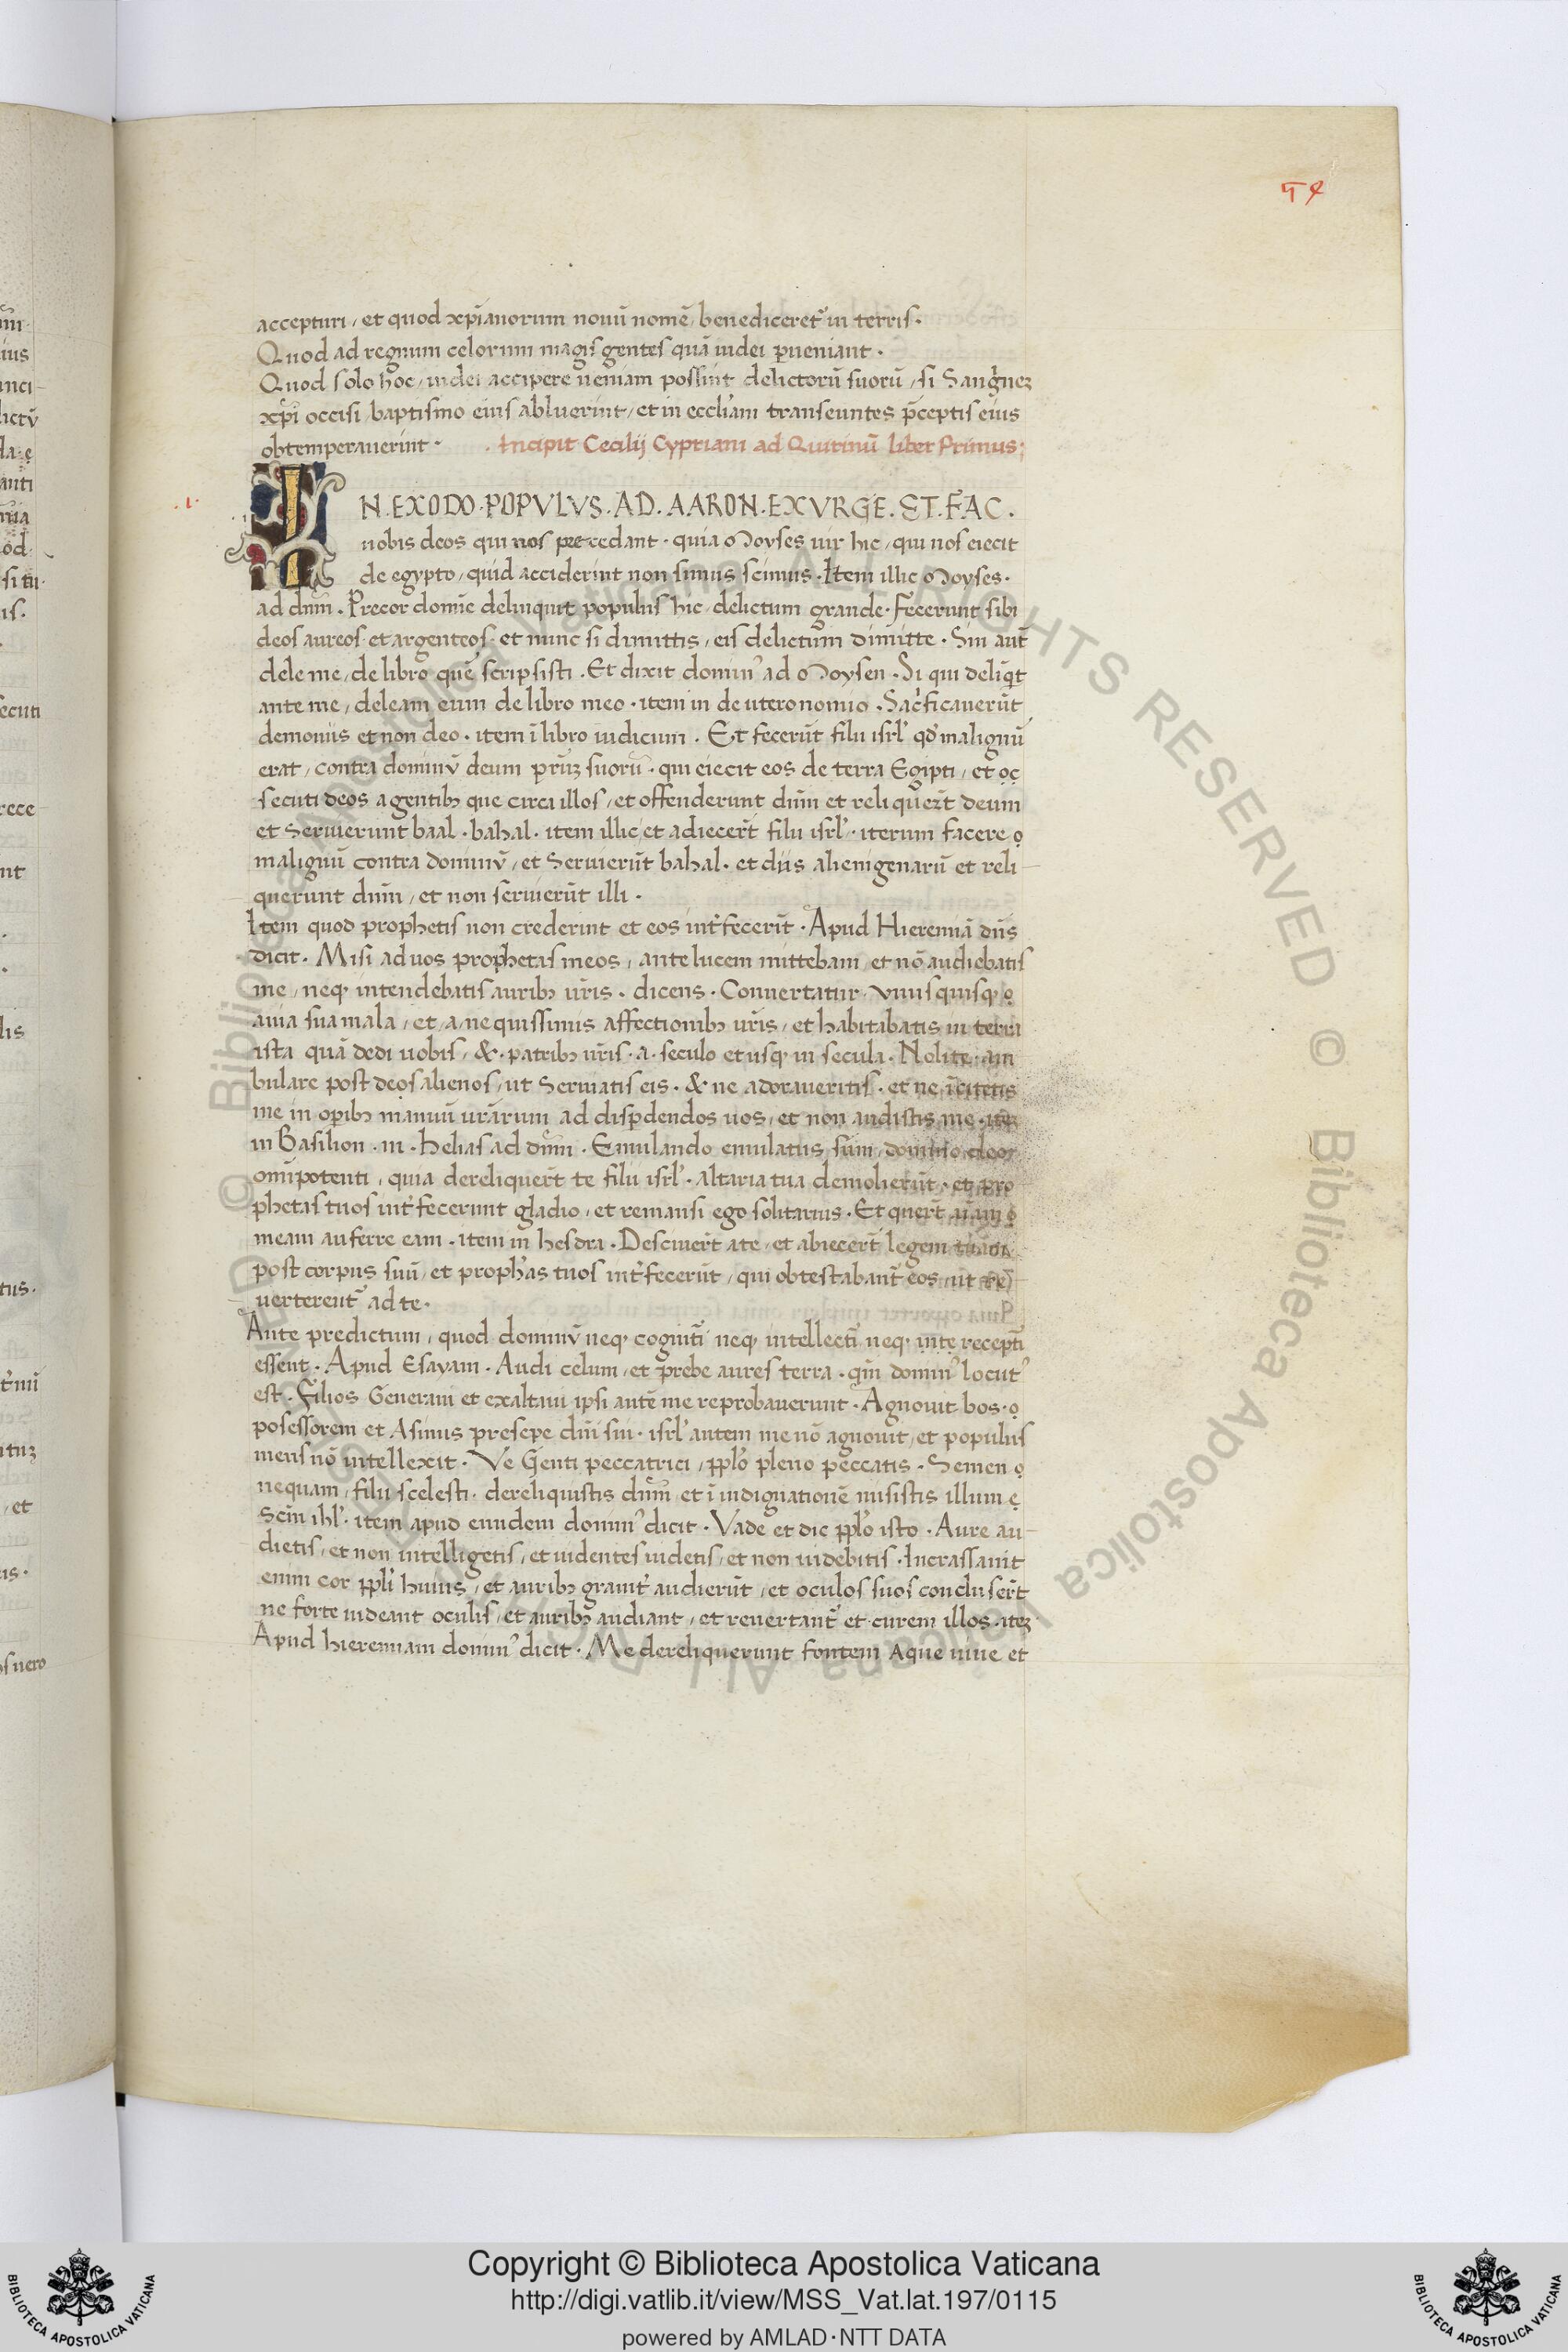 54
accepturi / et quod xp̄ianorum nouū nomē / benediceret᷑ in terris ·
Quod ad regnum celorum magis gentes quā iudei ꝑueniant ·
Quod solo hoc / iudei accipere ueniam possint delictorū suorū / si Sangͥneꝫ
xp̄i occisi / baptismo eius abluerint / et in eccl̄iam transeuntes p̄ceptis eius
obtemperauerint · . Incipit Cecilij Cypriani ad Quirinū liber Primus ;
.1.
IN · EXODO · POPVLVS · AD · AARON · EXVRGE · ET · FAC ·
nobis deos qui nos precedant · quia Moyses uir hic / qui nos eiecit
de egypto / quid acciderint non simus scimus · Item illic Moyses ·
ad dnm̄ · Precor domīe delinquit populus hic / delictum grande · Fecerunt sibi
deos aureos · et argenteos · et nunc si dimittis / eis delictum dimitte · Sin aut̄
dele me / de libro quē scripsisti · Et dixit dominꝰ ad Moysen · Si qui deliq̄t
ante me / deleam eum de libro meo · item in deuteronomio · Sacͥficauerūt
demoniis et non deo · item ī libro iudicum · Et fecerūt filii isrl̓ qd̓ malignū
erat / contra dominū deum pr̄uꝫ suorū · qui eiecit eos de terra Egipti / et
secuti deos a gentibꝫ que circa illos / et offenderunt dnm̄ et reliquer̄t deum
et Seruierunt baal · bahal · item illic et adiecer̄t filii isrl̓ · iterum facere
malignū contra dominū / et Seruierūt bahal · et diis alienigenarū et reli-
querunt dnm̄ / et non seruierūt illi ·
Item quod prophetis non crederint et eos int̓fecerīt · Apud Hieremiā dn̄s
dicit · Misi ad uos prophetas meos / ante lucem mittebam et nō audiebatis
me / neqꝫ intendebatis auribꝫ ur̄is · dicens · Conuertatur / Vnusquisqꝫ
auia sua mala / et / a / nequissimis affectionibꝫ ur̄is / et habitabatis in terra
ista quā dedi uobis / & · patribꝫ ur̄is · a · seculo et usqꝫ in secula · Nolite · am
bulare post deos alienos / ut Seruiatis eis · & ne adoraueritis · et ne īcitetis
me in oꝑibꝫ manuū ur̄arum ad disꝑdendos uos / et non audistis me · iteꝫ
in Basilion · iii · helias ad dnm̄ · Emulando emulatus sum / domino deo
omīpotenti / quia dereliquer̄t te filii isrl̓ · altaria tua demolierūt · et pro
phetas tuos int̓fecerunt gladio / et remansi ego solitarius · Et quer̄t aīam
meam auferre eam · item in hesdra · Desciuer̄t a te / et abiecer̄t legem tuam
post corpus suū / et proph̓as tuos int̓fecerūt / qui obtestabant᷑ eos / ut re
uerterent᷑ ad te ·
Ante predictum / quod dominū neqꝫ cognitī neqꝫ intellectī neqꝫ inte receptī
essent · Apud Esayam · Audi celum / et prebe aures terra · qm̄ dominꝰ locutꝰ
est · Filios Generaui et exaltaui ipsi autē me reprobauerunt · Agnouit bos ·
posessorem et Asinus presepe dnī sui · isrl̓ autem me nō agnouit / et populus
meus nō intellexit · Ve Genti peccatrici / ppl̓o pleno peccatis · Semen
nequam / filii scelesti · dereliquistis dnm̄ et ī indignationē misistis illum
Scm̄ ihl̓ · item apud eundem dominꝰ dicit · Vade et dic ppl̓o isto · Aure au-
dietis / et non intelligetis / et uidentes uidetis / et non uidebitis · Incrassauit
enim cor ppl̓i huius / et auribꝫ grauit̓ audierūt / et oculos suos concluser̄t
ne forte uideant oculis / et auribꝫ audiant / et reuertant᷑ et curem illos · iteꝫ
Apud hieremiam dominꝰ dicit · Me dereliquerunt fontem Aque uiue et
Copyright © Biblioteca Apostolica Vaticana
http://digi.vatlib.it/view/MSS_Vat.lat.197/0115
powered by AMLAD·NTT DATA
BIBLIOTECA APOSTOLICA VATICANA
BIBLIOTECA APOSTOLICA VATICANA